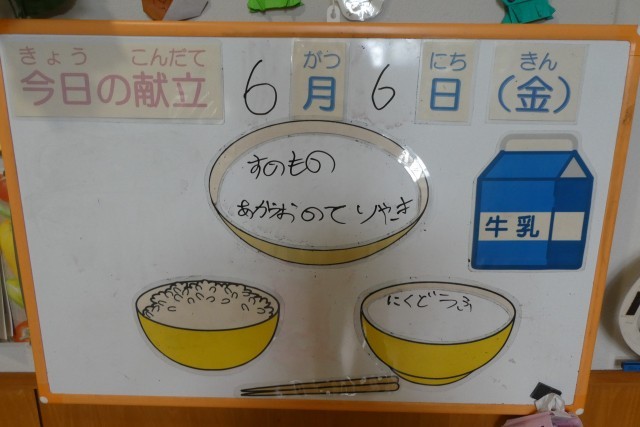 きょう こんだて がつ にち きん
今日の献立 6月 6日 (金)
すのもの
あかうおのてりやき
牛乳
にくどうふ